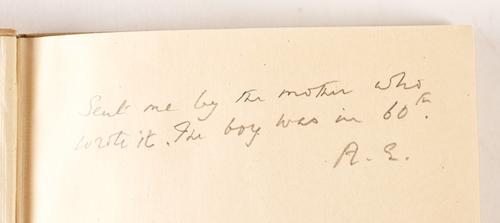 Sent me by the mother who
wrote it. The boy was in 60th.
A. E.